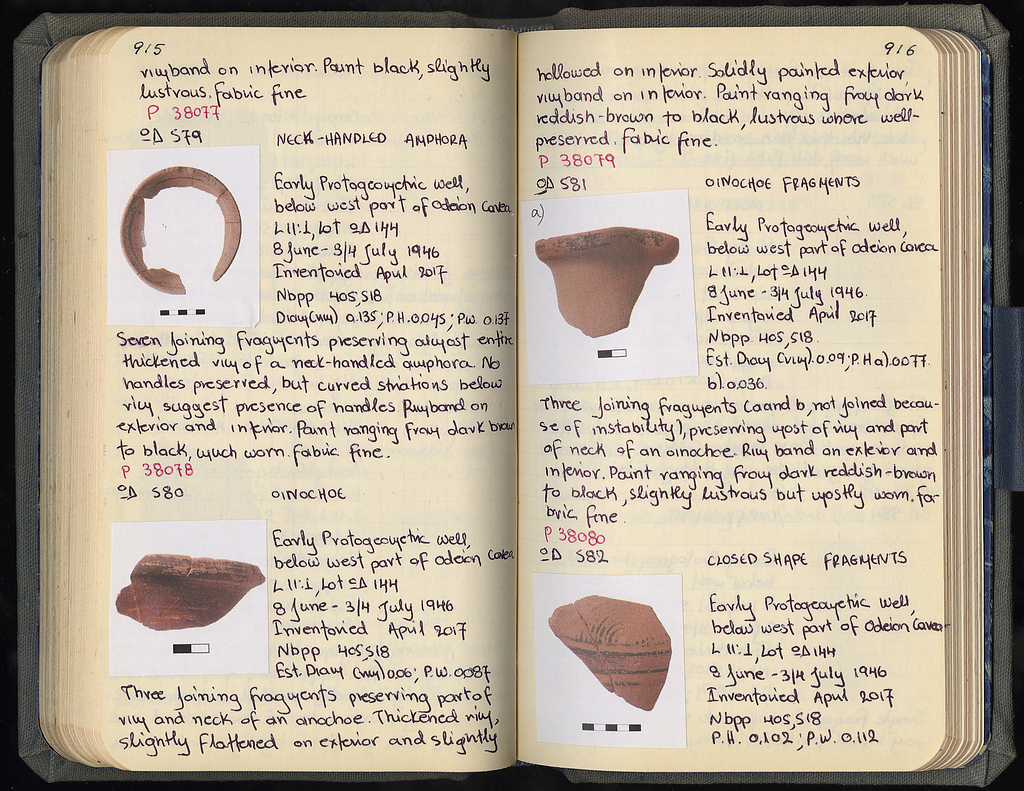 915
rimband on interior. Paint black, slightly
lustrous. Fabric fine
P 38077
ΟΔ 579 NECK-HANDLED AMPHORA
Early Protogeometric well,
below west part of Odeion Cavea
L 11:1, Lot ΟΔ 144
8 June - 3/4 July 1946
Inventoried April 2017
Nbpp 405,518
Diam (rim) 0.135; P.H. 0.045; P.W. 0.137
Seven joining fragments preserving almost entire
thickened rim of a neck-handled amphora. No
handles preserved, but curved striations below
rim suggest presence of handles Rimband on
exterior and interior. Paint ranging from dark brown
to black, much worn. Fabric fine.
P 38078
ΟΔ 580 OINOCHOE
Early Protogeometric well,
below west part of Odeion Cavea
L 11:1, Lot ΟΔ 144
8 June - 3/4 July 1946
Inventoried April 2017
Nbpp 405518
Est. Diam (rim) 0.06; P.W. 0.087
Three joining fragments preserving part of
rim and neck of an oinochoe. Thickened rim,
slightly flattened on exterior and slightly
916
hollowed on interior. Solidly painted exterior,
rimband on interior. Paint ranging from dark
reddish-brown to black, lustrous where well-
preserved. Fabric fine.
P 38079
ΟΔ 581 OINOCHOE FRAGMENTS
a)
Early Protogeometric well,
below west part of Odeion Cavea
L 11:1, Lot ΟΔ 144
8 June - 3/4 July 1946.
Inventoried April 2017
Nbpp. 405,518.
Est. Diam (rim). 0.09; P.H a). 0.077.
b). 0.036.
Three joining fragments (a and b, not joined becau-
se of instability), preserving most of rim and part
of neck of an oinochoe. Rim band on exterior and
interior. Paint ranging from dark reddish-brown
to black, slightly lustrous but mostly worn. Fa-
bric fine.
P 38080
ΟΔ 582 CLOSED SHAPE FRAGMENTS
Early Protogeometric well,
below west part of Odeion Cavea
L 11:1, Lot ΟΔ 144
8 June - 3/4 July 1946
Inventoried April 2017
Nbpp 405,518
P.H. 0.102; P.W. 0.112